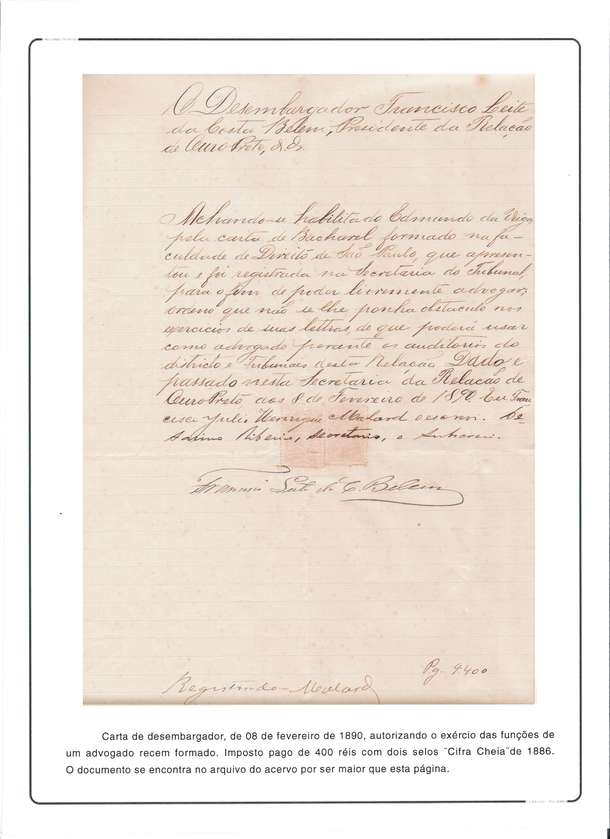 O Desembargador Francisco Leite
da Costa Belem, Presidente da Relação
de Ouro Preto, &.
Achando-se habilitado Edmundo da Veiga
pela carta de Bacharel formado na fa-
culdade de Direito de São Paulo, que apresen-
tou e foi registrada na Secretaria do Tribunal
para o fim de poder livremente advogar,
ordeno que não se lhe ponha obstaculo nos
exercicios de suas lettras, de que poderá usar
como advogado perante os auditorios do
districto e Tribunaes desta Relação. Dado e
passado nesta Secretaria da Relação de
Ouro Preto aos 8 de Fevereiro de 1890. Eu Fran-
cisco Julio Henrique Malard o escrevi.
Ribeiro, secretario, o
Francisco Leite da C. Belem
Pg. 4400
Registrado Malard
Carta de desembargador, de 08 de fevereiro de 1890, autorizando o exércio das funções de
um advogado recem formado. Imposto pago de 400 réis com dois selos ¨Cifra Cheia¨de 1886.
O documento se encontra no arquivo do acervo por ser maior que esta página.